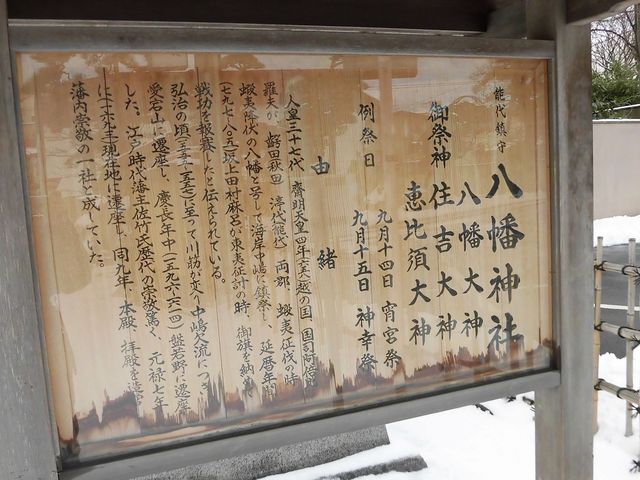 能代鎮守 八幡神社
御祭神 八幡大神
住吉大神
恵比須大神
例祭日 九月十四日 宵宮祭
九月十五日 神幸祭
由緒
人皇三十七代 齊明天皇四年(六五八)越の国 国司阿倍比
羅夫が、齶田秋田 渟代能代 両郡 蝦夷征伐の時
蝦夷降伏の八幡と号して海岸中嶋に鎮祭し、延暦年
(七九七~八〇五)坂上田村麻呂が東夷征討の時、御旗を納
戦功を報賽したと伝えられている。
弘治の頃(一五五五)に至って川筋が変り中嶋欠流につき
愛宕山に遷座し、慶長年中(一五九六~一六一四)盤若野に遷座
した。江戸時代藩主佐竹氏歴代の崇敬篤く、元禄七年
に現在地に遷座し、同九年、本殿、拝殿を造
藩内崇敬の一社と成していた。